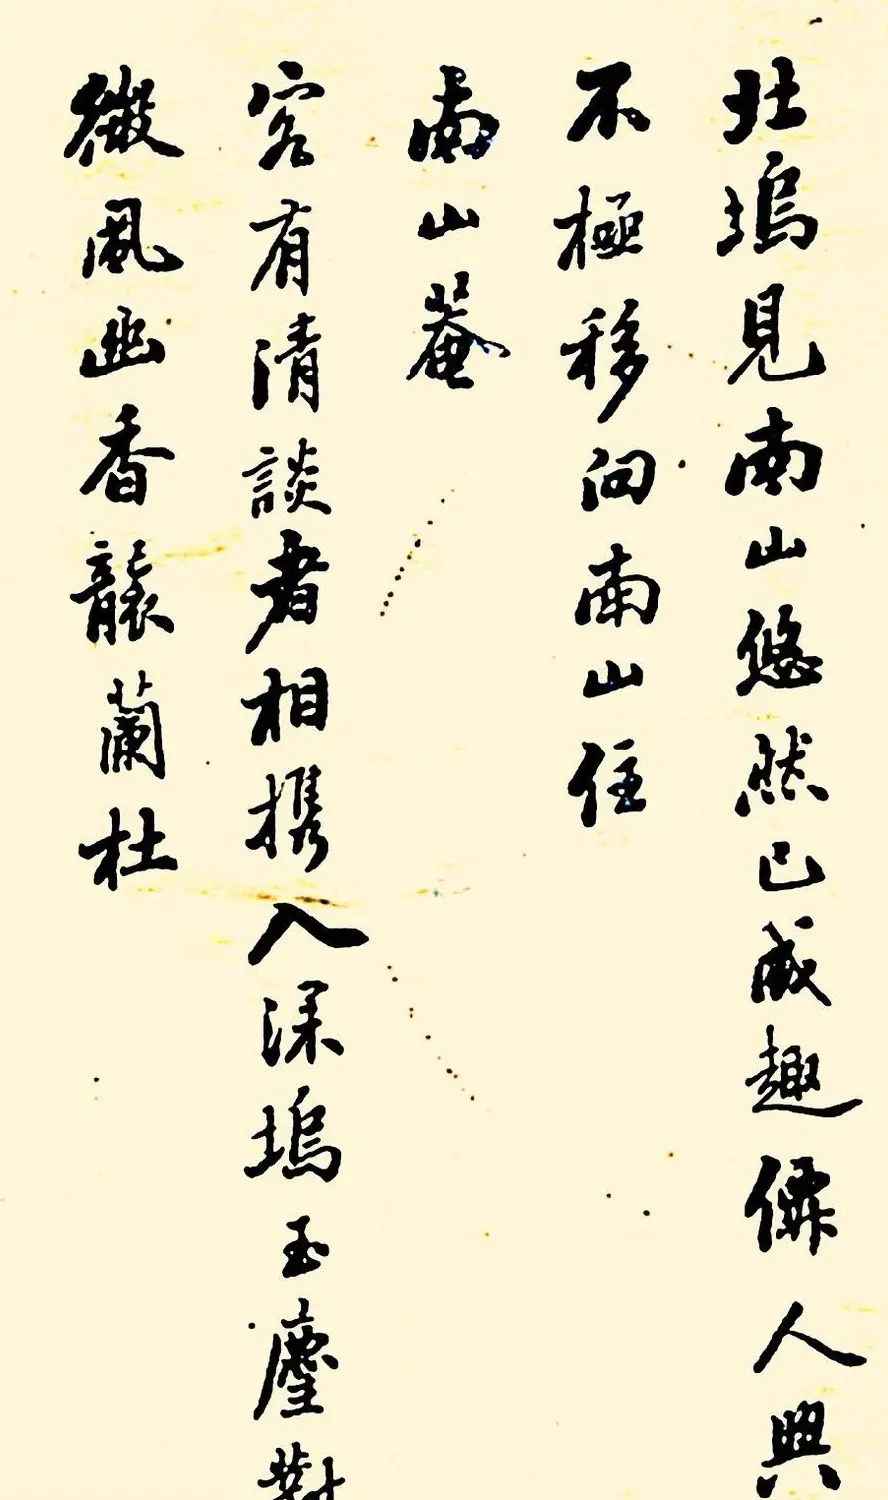 北塢見南山悠然已成趣儒人興
不極移向南山住
南山菴
客有清談者相攜入深塢玉麈對
微風幽香襲蘭杜